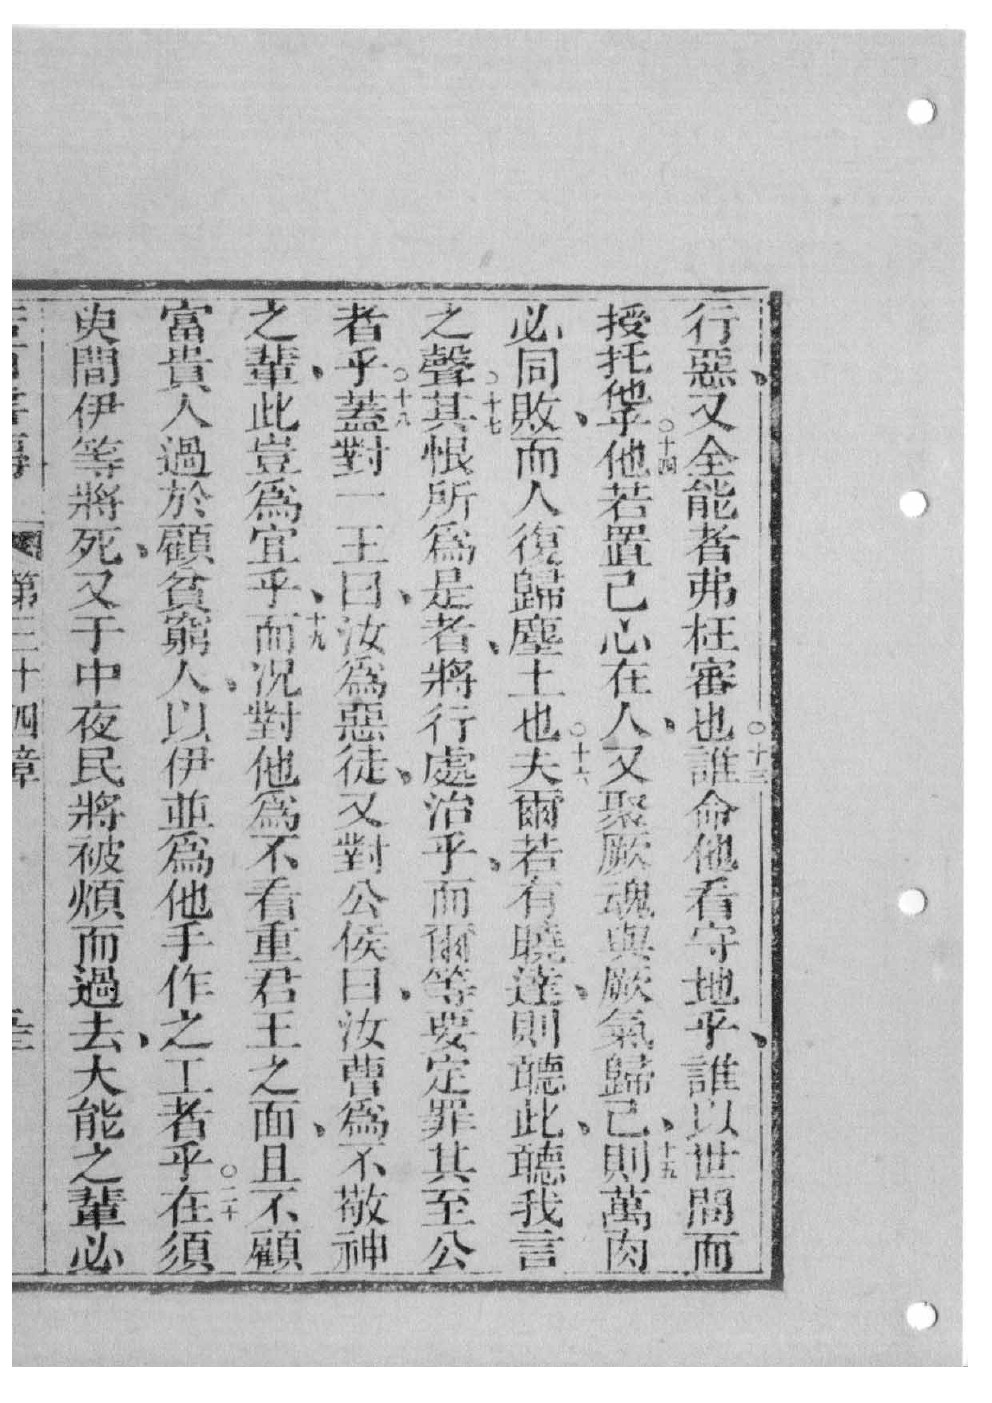 行惡、又全能者弗枉審也○十三誰命他看守地乎、誰以世間而
授托他乎○十四他若置己心在人、又聚厥魂與厥氣歸己、十五則萬肉
必同敗、而人復歸塵土也○十六夫爾若有曉達、則聽此、聽我言
之聲○十七其恨所爲是者、將行處治乎、而爾等要定罪其至公
者乎○十八蓋對一王曰、汝爲惡徒、又對公侯曰、汝曹爲不敬神
之輩、此豈爲宜乎、十九而況對他爲不看重君王之面、且不顧
富貴人過於顧貧窮人、以伊並爲他手作之工者乎○二十在須
臾間伊等將死、又于中夜民將被煩而過去、大能之輩必
第三十四章